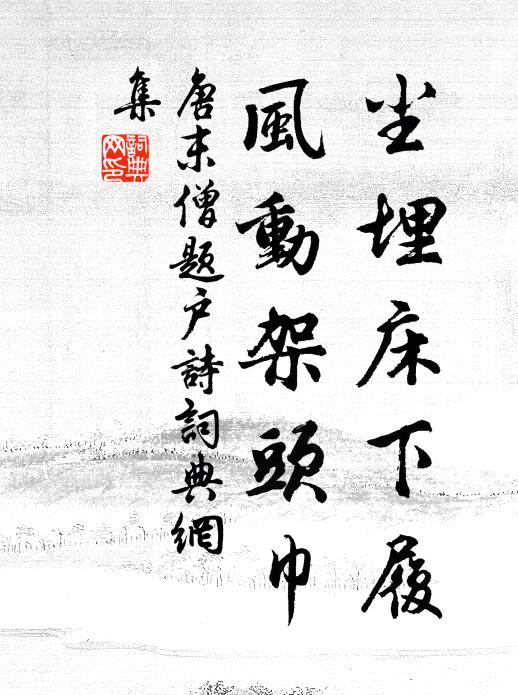 尘埋床下履
風動架頭巾
唐末僧題户詩詞典網
集
詞典
网印